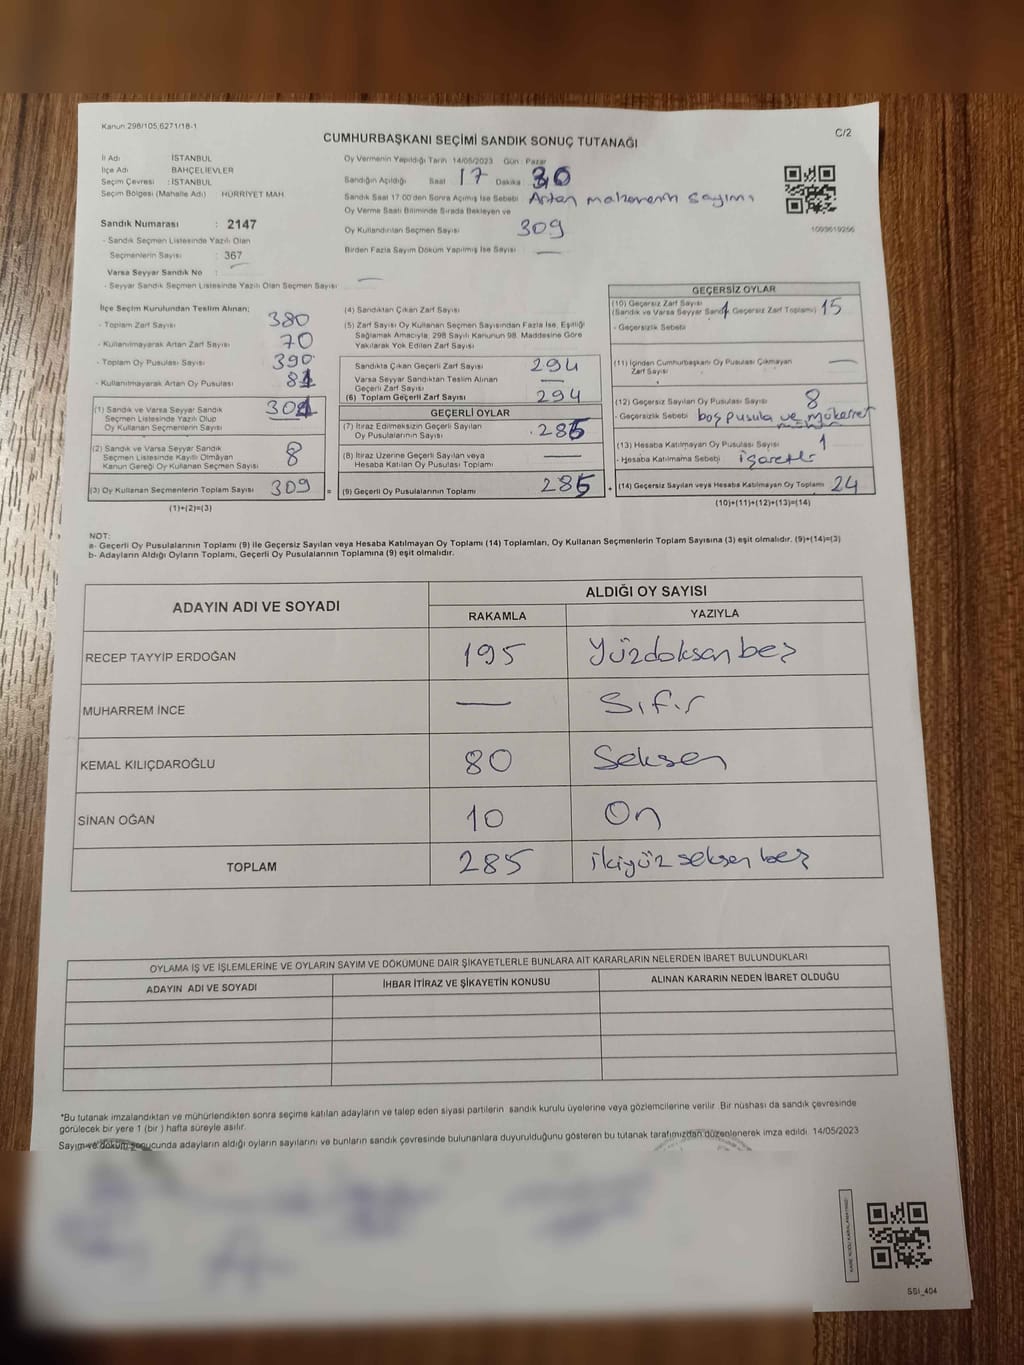 Kanun:298/105;6271/18-1
C/2
CUMHURBAŞKANI SEÇİMİ SANDIK SONUÇ TUTANAĞI
İl Adı İSTANBUL
İlçe Adı BAHÇELİEVLER
Seçim Çevresi : İSTANBUL
Seçim Bölgesi (Mahalle Adı) HÜRRİYET MAH.
Sandık Numarası : 2147
- Sandık Seçmen Listesinde Yazılı Olan
Seçmenlerin Sayısı : 367
Varsa Seyyar Sandık No :
- Seyyar Sandık Seçmen Listesinde Yazılı Olan Seçmen Sayısı —
Oy Vermenin Yapıldığı Tarih 14/05/2023 Gün : Pazar
Sandığın Açıldığı Saat 17 Dakika : 30
Sandık Saat 17:00'den Sonra Açılmış İse Sebebi Artan malzemenin sayımı
Oy Verme Saati Bitiminde Sırada Bekleyen ve
Oy Kullandırılan Seçmen Sayısı 309
Birden Fazla Sayım Döküm Yapılmış İse Sayısı —
1093619256
İlçe Seçim Kurulundan Teslim Alınan;
- Toplam Zarf Sayısı 380
- Kullanılmayarak Artan Zarf Sayısı 70
- Toplam Oy Pusulası Sayısı 390
- Kullanılmayarak Artan Oy Pusulası 81
(1) Sandık ve Varsa Seyyar Sandık 301
Seçmen Listesinde Yazılı Olup
Oy Kullanan Seçmenlerin Sayısı
(2) Sandık ve Varsa Seyyar Sandık
Seçmen Listesinde Kayıtlı Olmayan 8
Kanun Gereği Oy Kullanan Seçmen Sayısı
(3) Oy Kullanan Seçmenlerin Toplam Sayısı 309 =
(1)+(2)=(3)
(4) Sandıktan Çıkan Zarf Sayısı
(5) Zarf Sayısı Oy Kullanan Seçmen Sayısından Fazla İse, Eşitliği
Sağlamak Amacıyla, 298 Sayılı Kanunun 98. Maddesine Göre
Yakılarak Yok Edilen Zarf Sayısı
Sandıkta Çıkan Geçerli Zarf Sayısı 294
Varsa Seyyar Sandıktan Teslim Alınan —
Geçerli Zarf Sayısı
(6) Toplam Geçerli Zarf Sayısı 294
GEÇERLİ OYLAR
(7) İtiraz Edilmeksizin Geçerli Sayılan 285
Oy Pusulalarının Sayısı
(8) İtiraz Üzerine Geçerli Sayılan veya —
Hesaba Katılan Oy Pusulası Toplamı
(9) Geçerli Oy Pusulalarının Toplamı 285 +
GEÇERSİZ OYLAR
(10) Geçersiz Zarf Sayısı 15
(Sandık ve Varsa Seyyar Sandık Geçersiz Zarf Toplamı)
- Geçersizlik Sebebi
(11) İçinden Cumhurbaşkanı Oy Pusulası Çıkmayan —
Zarf Sayısı
(12) Geçersiz Sayılan Oy Pusulası Sayısı 8
- Geçersizlik Sebebi boş pusula ve mükerret
(13) Hesaba Katılmayan Oy Pusulası Sayısı 1
- Hesaba Katılmama Sebebi işaretli
(14) Geçersiz Sayılan veya Hesaba Katılmayan Oy Toplamı 24
(10)+(11)+(12)+(13)=(14)
NOT:
a- Geçerli Oy Pusulalarının Toplamı (9) ile Geçersiz Sayılan veya Hesaba Katılmayan Oy Toplamı (14) Toplamları, Oy Kullanan Seçmenlerin Toplam Sayısına (3) eşit olmalıdır. (9)+(14)=(3)
b- Adayların Aldığı Oyların Toplamı, Geçerli Oy Pusulalarının Toplamına (9) eşit olmalıdır.
ADAYIN ADI VE SOYADI
ALDIĞI OY SAYISI
RAKAMLA YAZIYLA
RECEP TAYYİP ERDOĞAN 195 Yüzdoksanbeş
MUHARREM İNCE — Sıfır
KEMAL KILIÇDAROĞLU 80 Seksen
SİNAN OĞAN 10 On
TOPLAM 285 ikiyüz seksen beş
OYLAMA İŞ VE İŞLEMLERİNE VE OYLARIN SAYIM VE DÖKÜMÜNE DAİR ŞİKAYETLERLE BUNLARA AİT KARARLARIN NELERDEN İBARET BULUNDUKLARI
ADAYIN ADI VE SOYADI İHBAR İTİRAZ VE ŞİKAYETİN KONUSU ALINAN KARARIN NEDEN İBARET OLDUĞU
*Bu tutanak imzalandıktan ve mühürlendikten sonra seçime katılan adayların ve talep eden siyasi partilerin sandık kurulu üyelerine veya gözlemcilerine verilir. Bir nüshası da sandık çevresinde
görülecek bir yere 1 (bir ) hafta süreyle asılır.
Sayım ve döküm sonucunda adayların aldığı oyların sayılarını ve bunların sandık çevresinde bulunanlara duyurulduğunu gösteren bu tutanak tarafımızdan düzenlenerek imza edildi. 14/05/2023
SSI_404